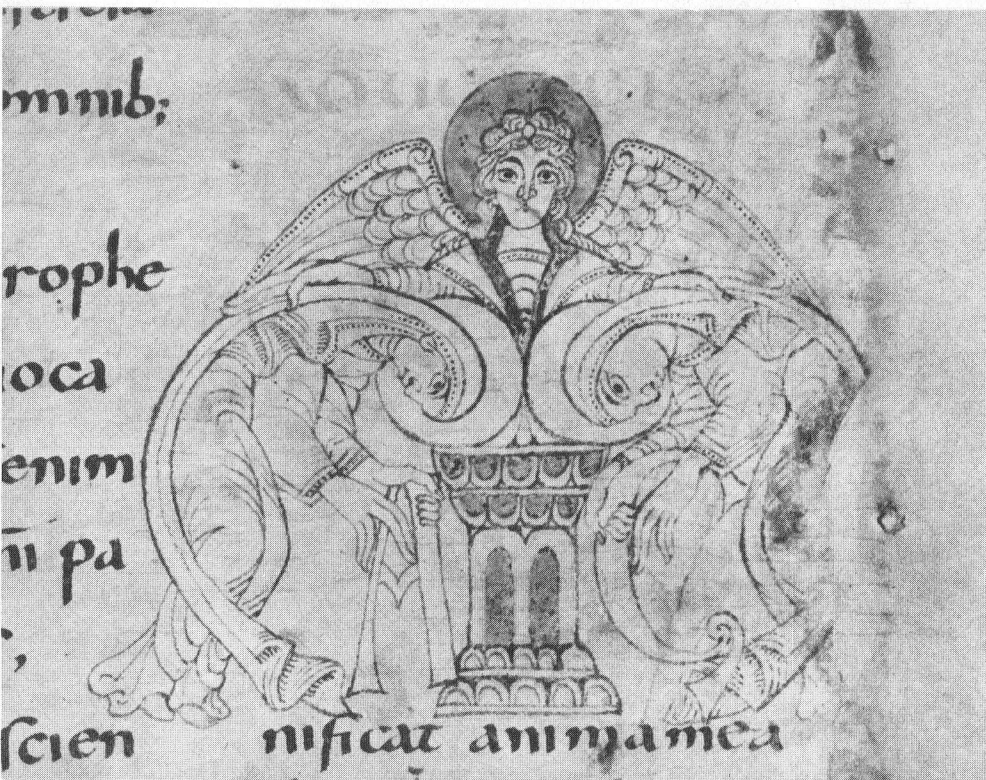 omnib;
rophe
oca
enim
pa
scien
nificat anima mea